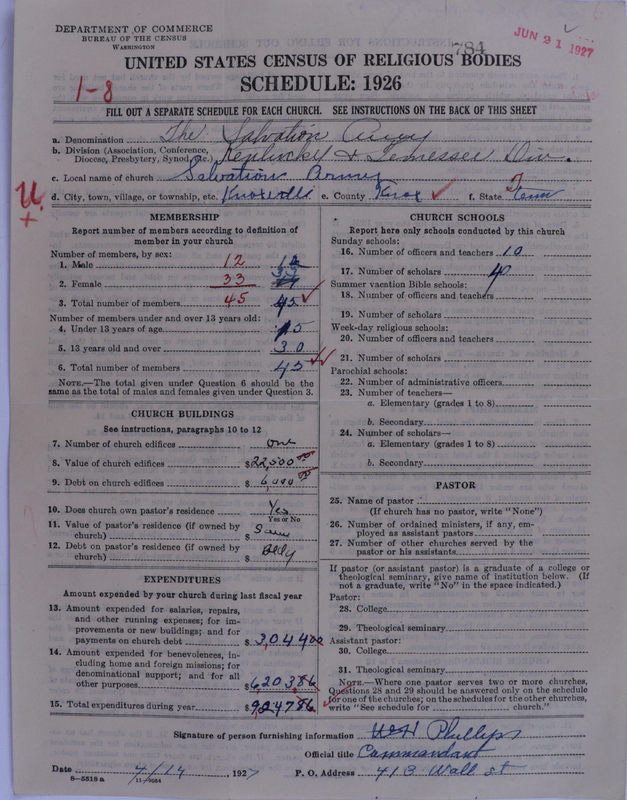 DEPARTMENT OF COMMERCE
BUREAU OF THE CENSUS
WASHINGTON
784
JUN 21 1927
UNITED STATES CENSUS OF RELIGIOUS BODIES
SCHEDULE: 1926
1-8
FILL OUT A SEPARATE SCHEDULE FOR EACH CHURCH. SEE INSTRUCTIONS ON THE BACK OF THIS SHEET
a. Denomination The Salvation Army
b. Division (Association, Conference, Diocese, Presbytery, Synod, etc.) Kentucky & Tennessee Div.
c. Local name of church Salvation Army
d. City, town, village, or township, etc. Knoxville e. County Knox f. State Tenn
MEMBERSHIP
Report number of members according to definition of
member in your church
Number of members, by sex:
1. Male 12 12
2. Female 33 33
3. Total number of members 45 45
Number of members under and over 13 years old:
4. Under 13 years of age 15
5. 13 years old and over 30
6. Total number of members 45
NOTE.—The total given under Question 6 should be the
same as the total of males and females given under Question 3.
CHURCH BUILDINGS
See instructions, paragraphs 10 to 12
7. Number of church edifices one
8. Value of church edifices $22,500
9. Debt on church edifices $6,000
10. Does church own pastor's residence? Yes
Yes or No
11. Value of pastor's residence (if owned by
church) $
12. Debt on pastor's residence (if owned by
church) $
EXPENDITURES
Amount expended by your church during last fiscal year
13. Amount expended for salaries, repairs,
and other running expenses; for im-
provements or new buildings; and for
payments on church debt $3,04400
14. Amount expended for benevolences, in-
cluding home and foreign missions; for
denominational support; and for all
other purposes $6,20386
15. Total expenditures during year $9,24786
CHURCH SCHOOLS
Report here only schools conducted by this church
Sunday schools:
16. Number of officers and teachers 10
17. Number of scholars 40
Summer vacation Bible schools:
18. Number of officers and teachers
19. Number of scholars
Week-day religious schools:
20. Number of officers and teachers
21. Number of scholars
Parochial schools:
22. Number of administrative officers
23. Number of teachers—
a. Elementary (grades 1 to 8)
b. Secondary
24. Number of scholars—
a. Elementary (grades 1 to 8)
b. Secondary
PASTOR
25. Name of pastor
(If church has no pastor, write "None")
26. Number of ordained ministers, if any, em-
ployed as assistant pastors
27. Number of other churches served by the
pastor or his assistants
If pastor (or assistant pastor) is a graduate of a college or
theological seminary, give name of institution below. (If
not a graduate, write "No" in the space indicated.)
Pastor:
28. College
29. Theological seminary
Assistant pastor:
30. College
31. Theological seminary
NOTE.—Where one pastor serves two or more churches,
Questions 28 and 29 should be answered only on the schedule
for one of the churches; on the schedules for the other churches,
write "See schedule for church."
Signature of person furnishing information W H Phillips
Official title Commandant
Date 4/14, 1927 P. O. Address 413 Wall st
8—5518a 11—9084